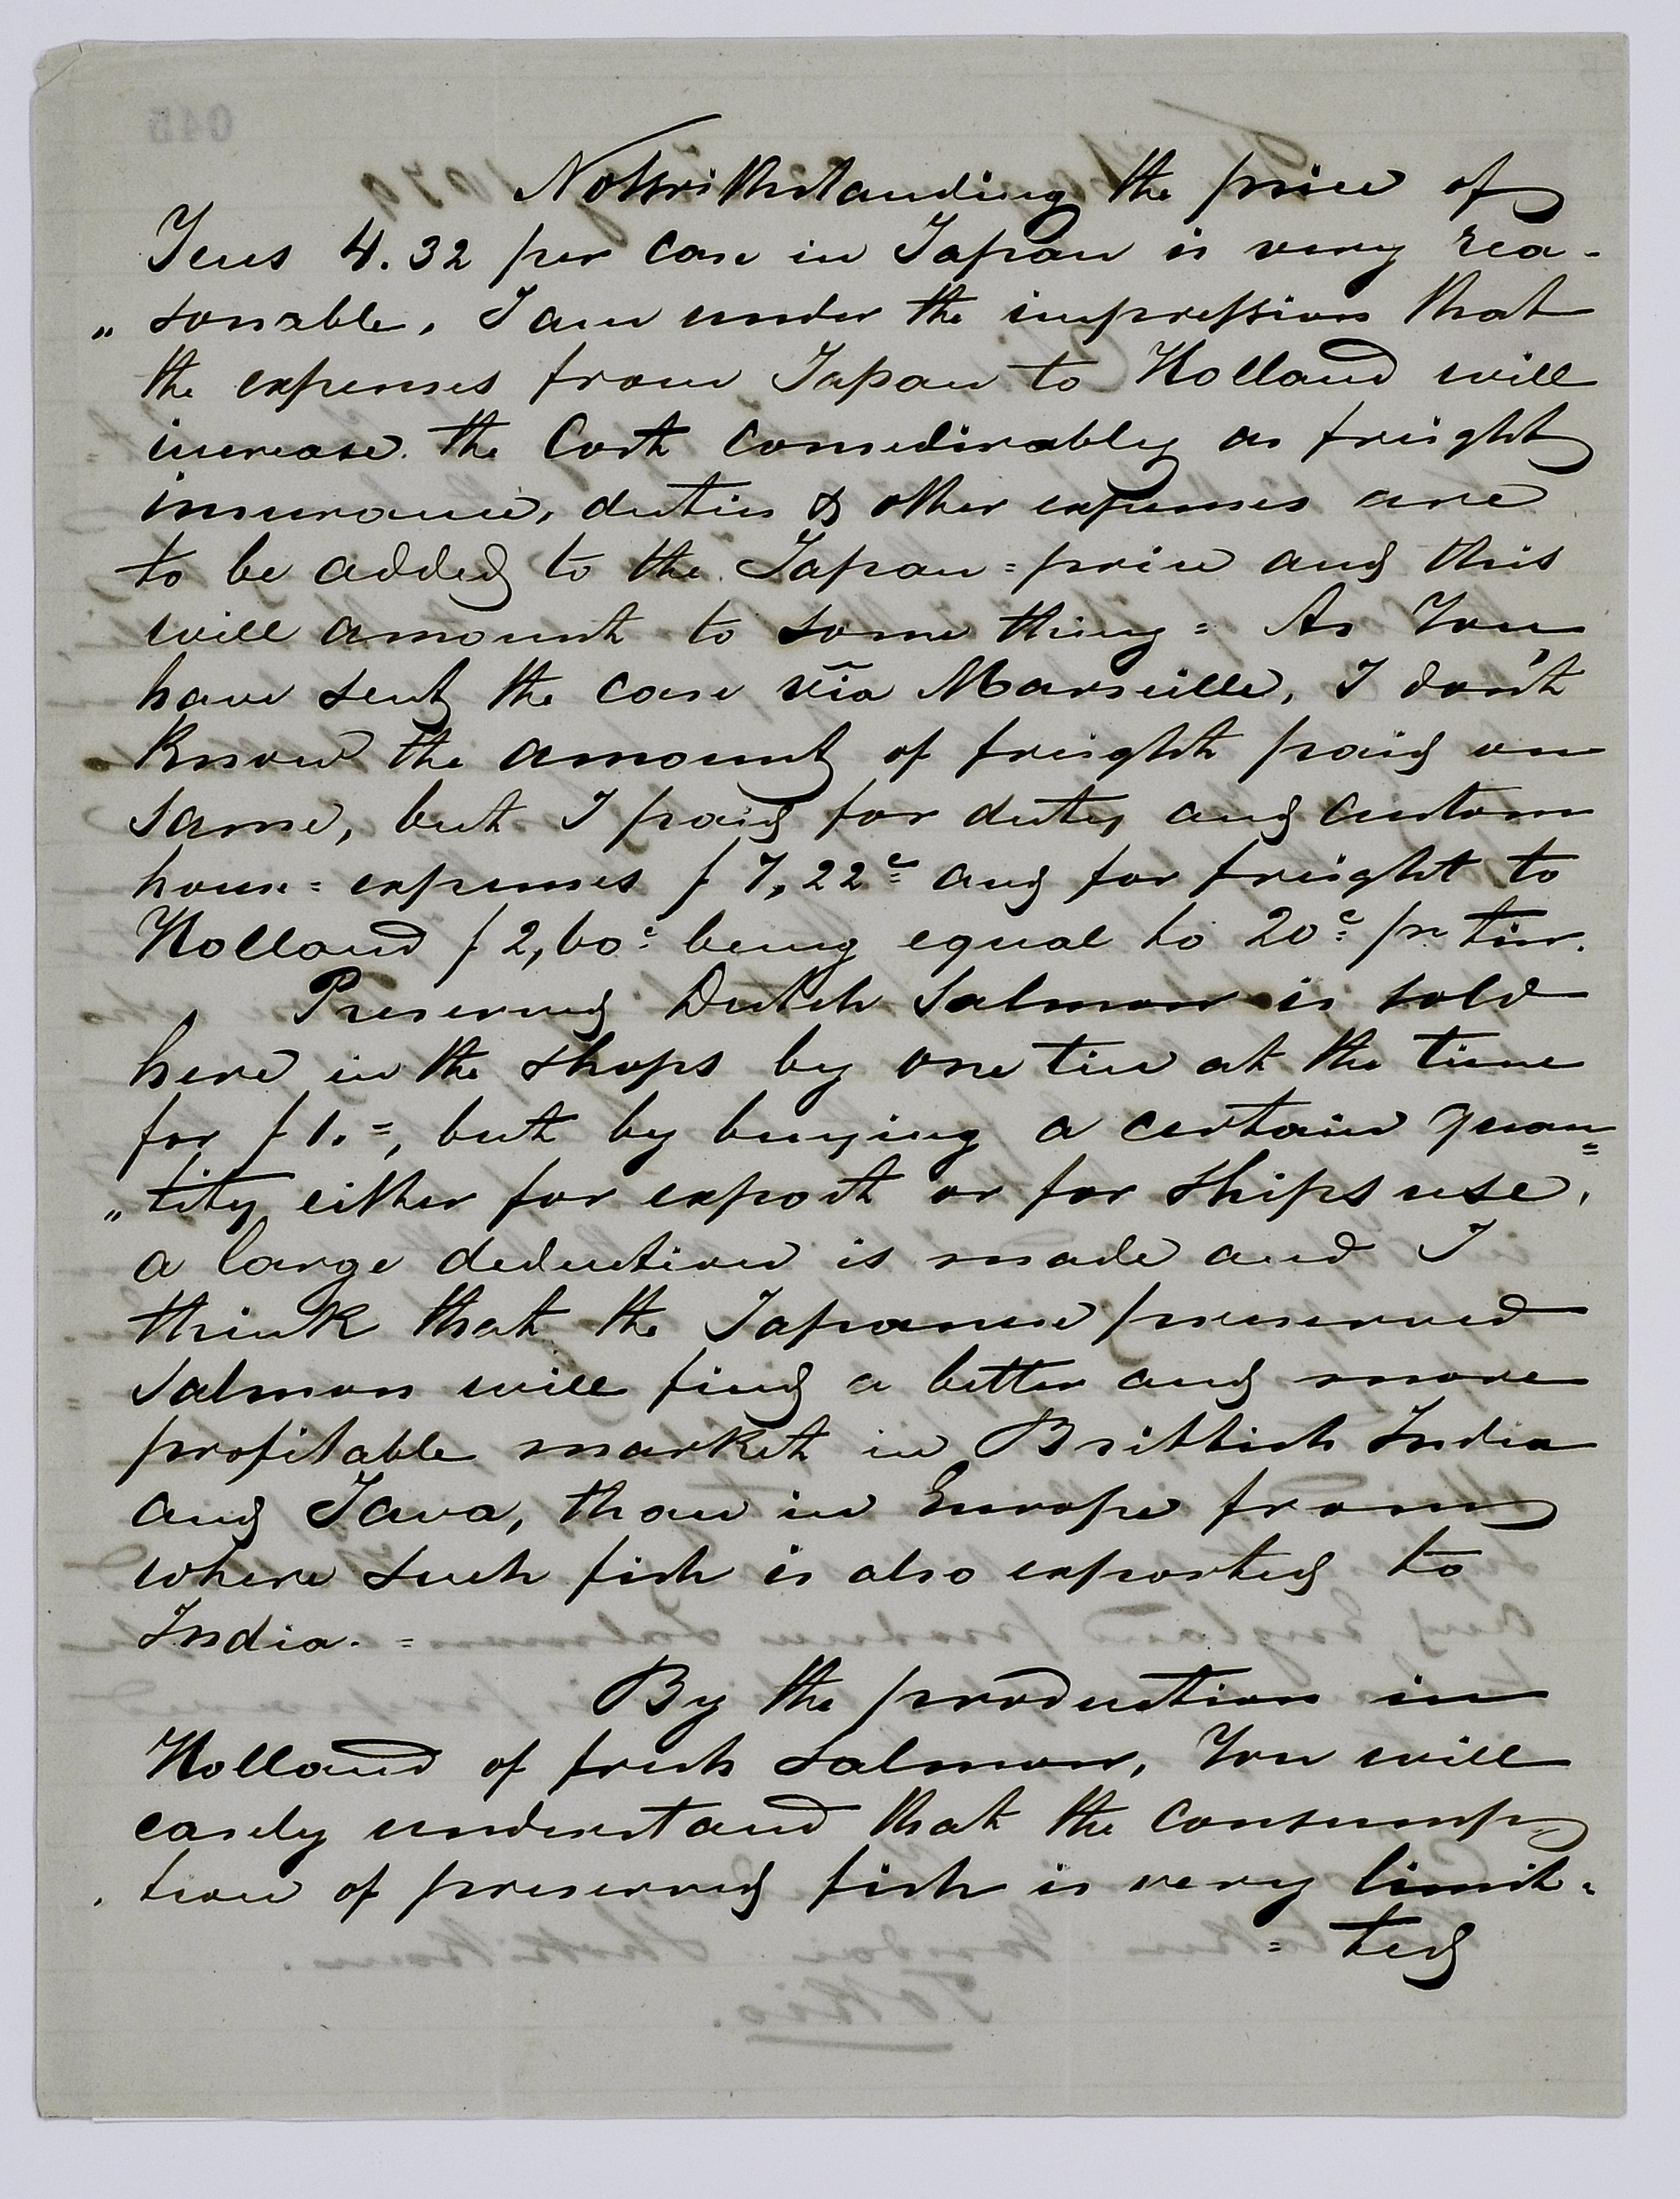 Notwithstanding the price of
Jens 4.32 per case in Japan is very rea-
„ sonable, I am under the impression that
the expenses from Japan to Holland will
increase the Cost Considirably as freight
insurance, duties & other expenses are
to be added to the Japan = price and this
will amount to some thing = As You
have sent the case via Marseille, I don't
know the amount of freight paid on
same, but I paid for duty and custom
house = expenses f 7,22c and for freight to
Holland f 2,60c being equal to 20c pr tin.
Preserved Dutch Salmon is sold
here in the shops by one tin at the time
for f 1. =, but by buying a certain quan=
„ tity either for export or for ships use,
a large deduction is made and I
think that the Japanese preserved
Salmon will find a better and more
profitable market in Brittish India
and Java, than in Europe from
where such fish is also exported to
India. =
By the production in
Holland of fresh Salmon, You will
easely understand that the consump
tion of preserved fish is very limit=
= ted